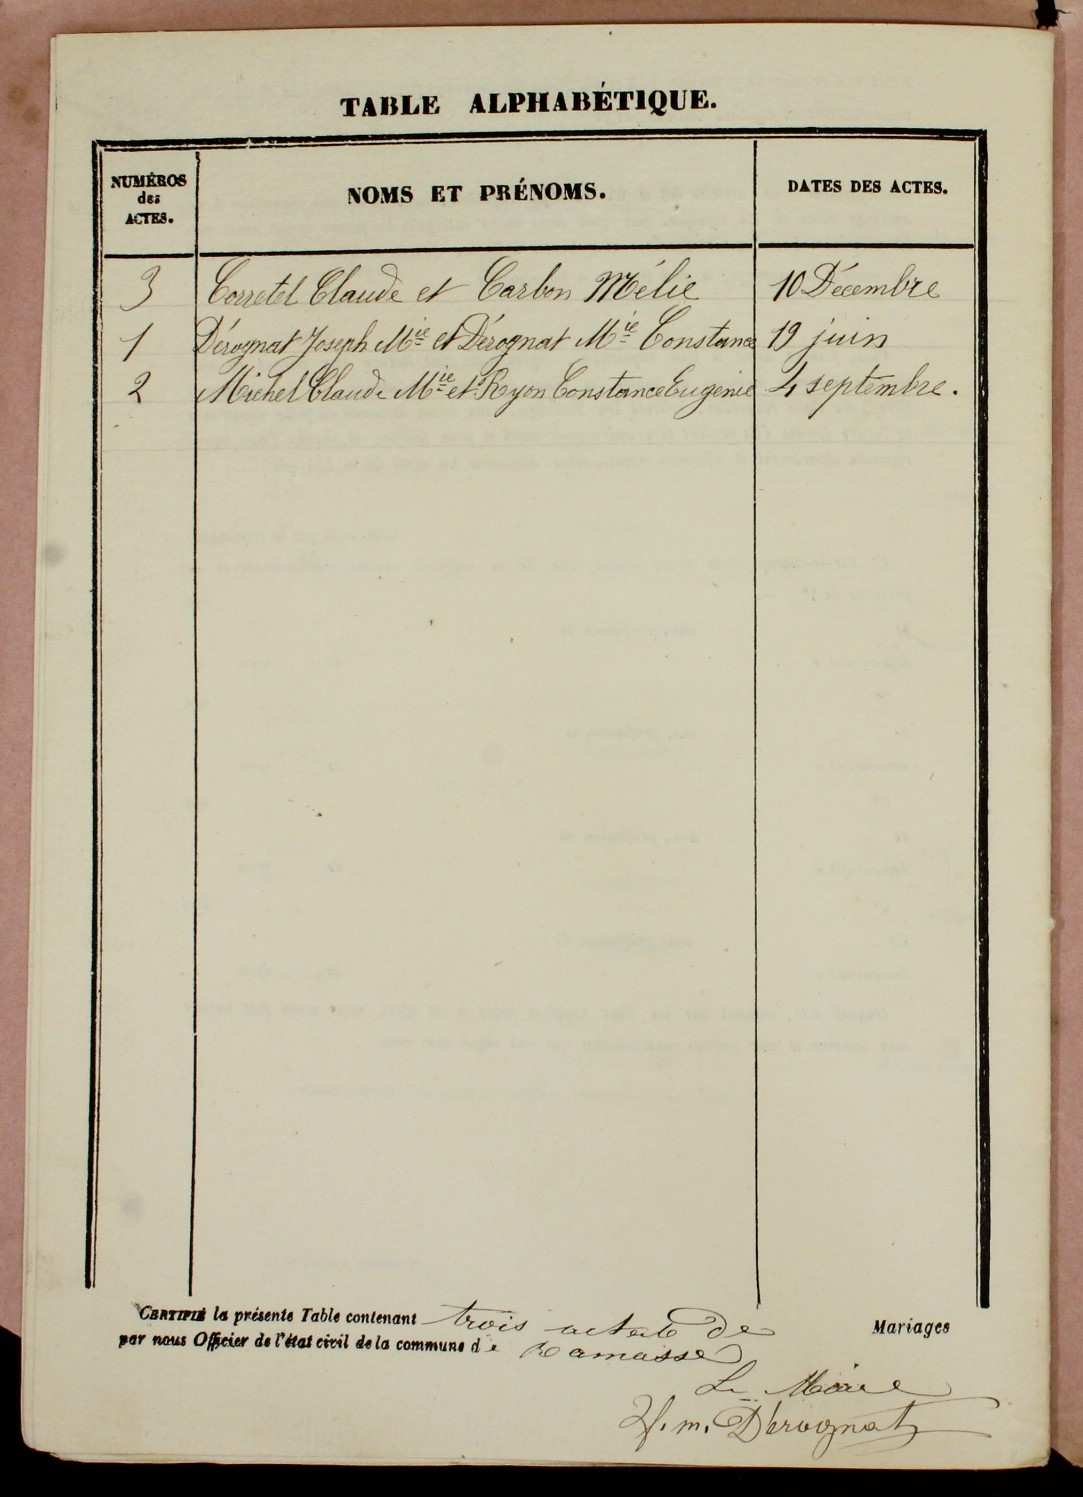 TABLE ALPHABÉTIQUE.
NUMÉROS des ACTES.
NOMS ET PRÉNOMS.
DATES DES ACTES.
3 Corretel Claude et Carbon Mélie 10 Décembre
1 Dérognat Joseph Mie et Dérognat Mie Constance 19 juin
2 Michel Claude Mie et Ryon Constance Eugénie 4 septembre.
CERTIFIÉ la présente Table contenant trois actes de Mariages
par nous Officier de l'état civil de la commune de Ramasse
Le Maire
m. Dérognat